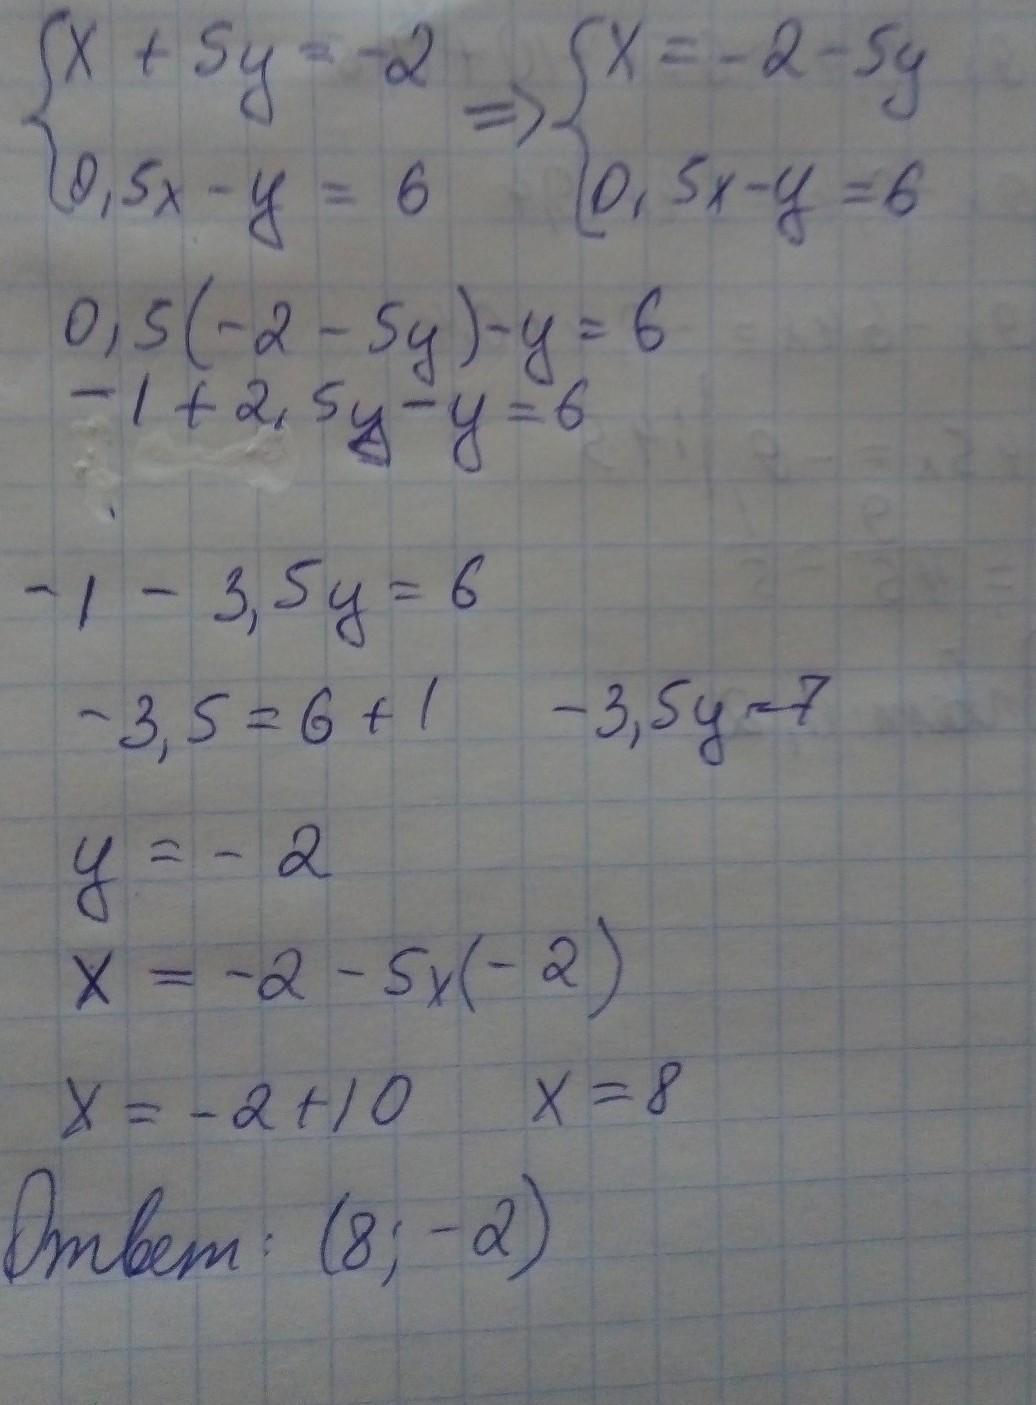 {x + 5y = -2 => {x = -2 - 5y
{0,5x - y = 6 {0,5x - y = 6
0,5(-2 - 5y) - y = 6
-1 + 2,5y - y = 6
-1 - 3,5y = 6
-3,5 = 6 + 1 -3,5y = 7
y = - 2
x = -2 - 5x(-2)
x = -2 + 10 x = 8
Ответ: (8; -2)